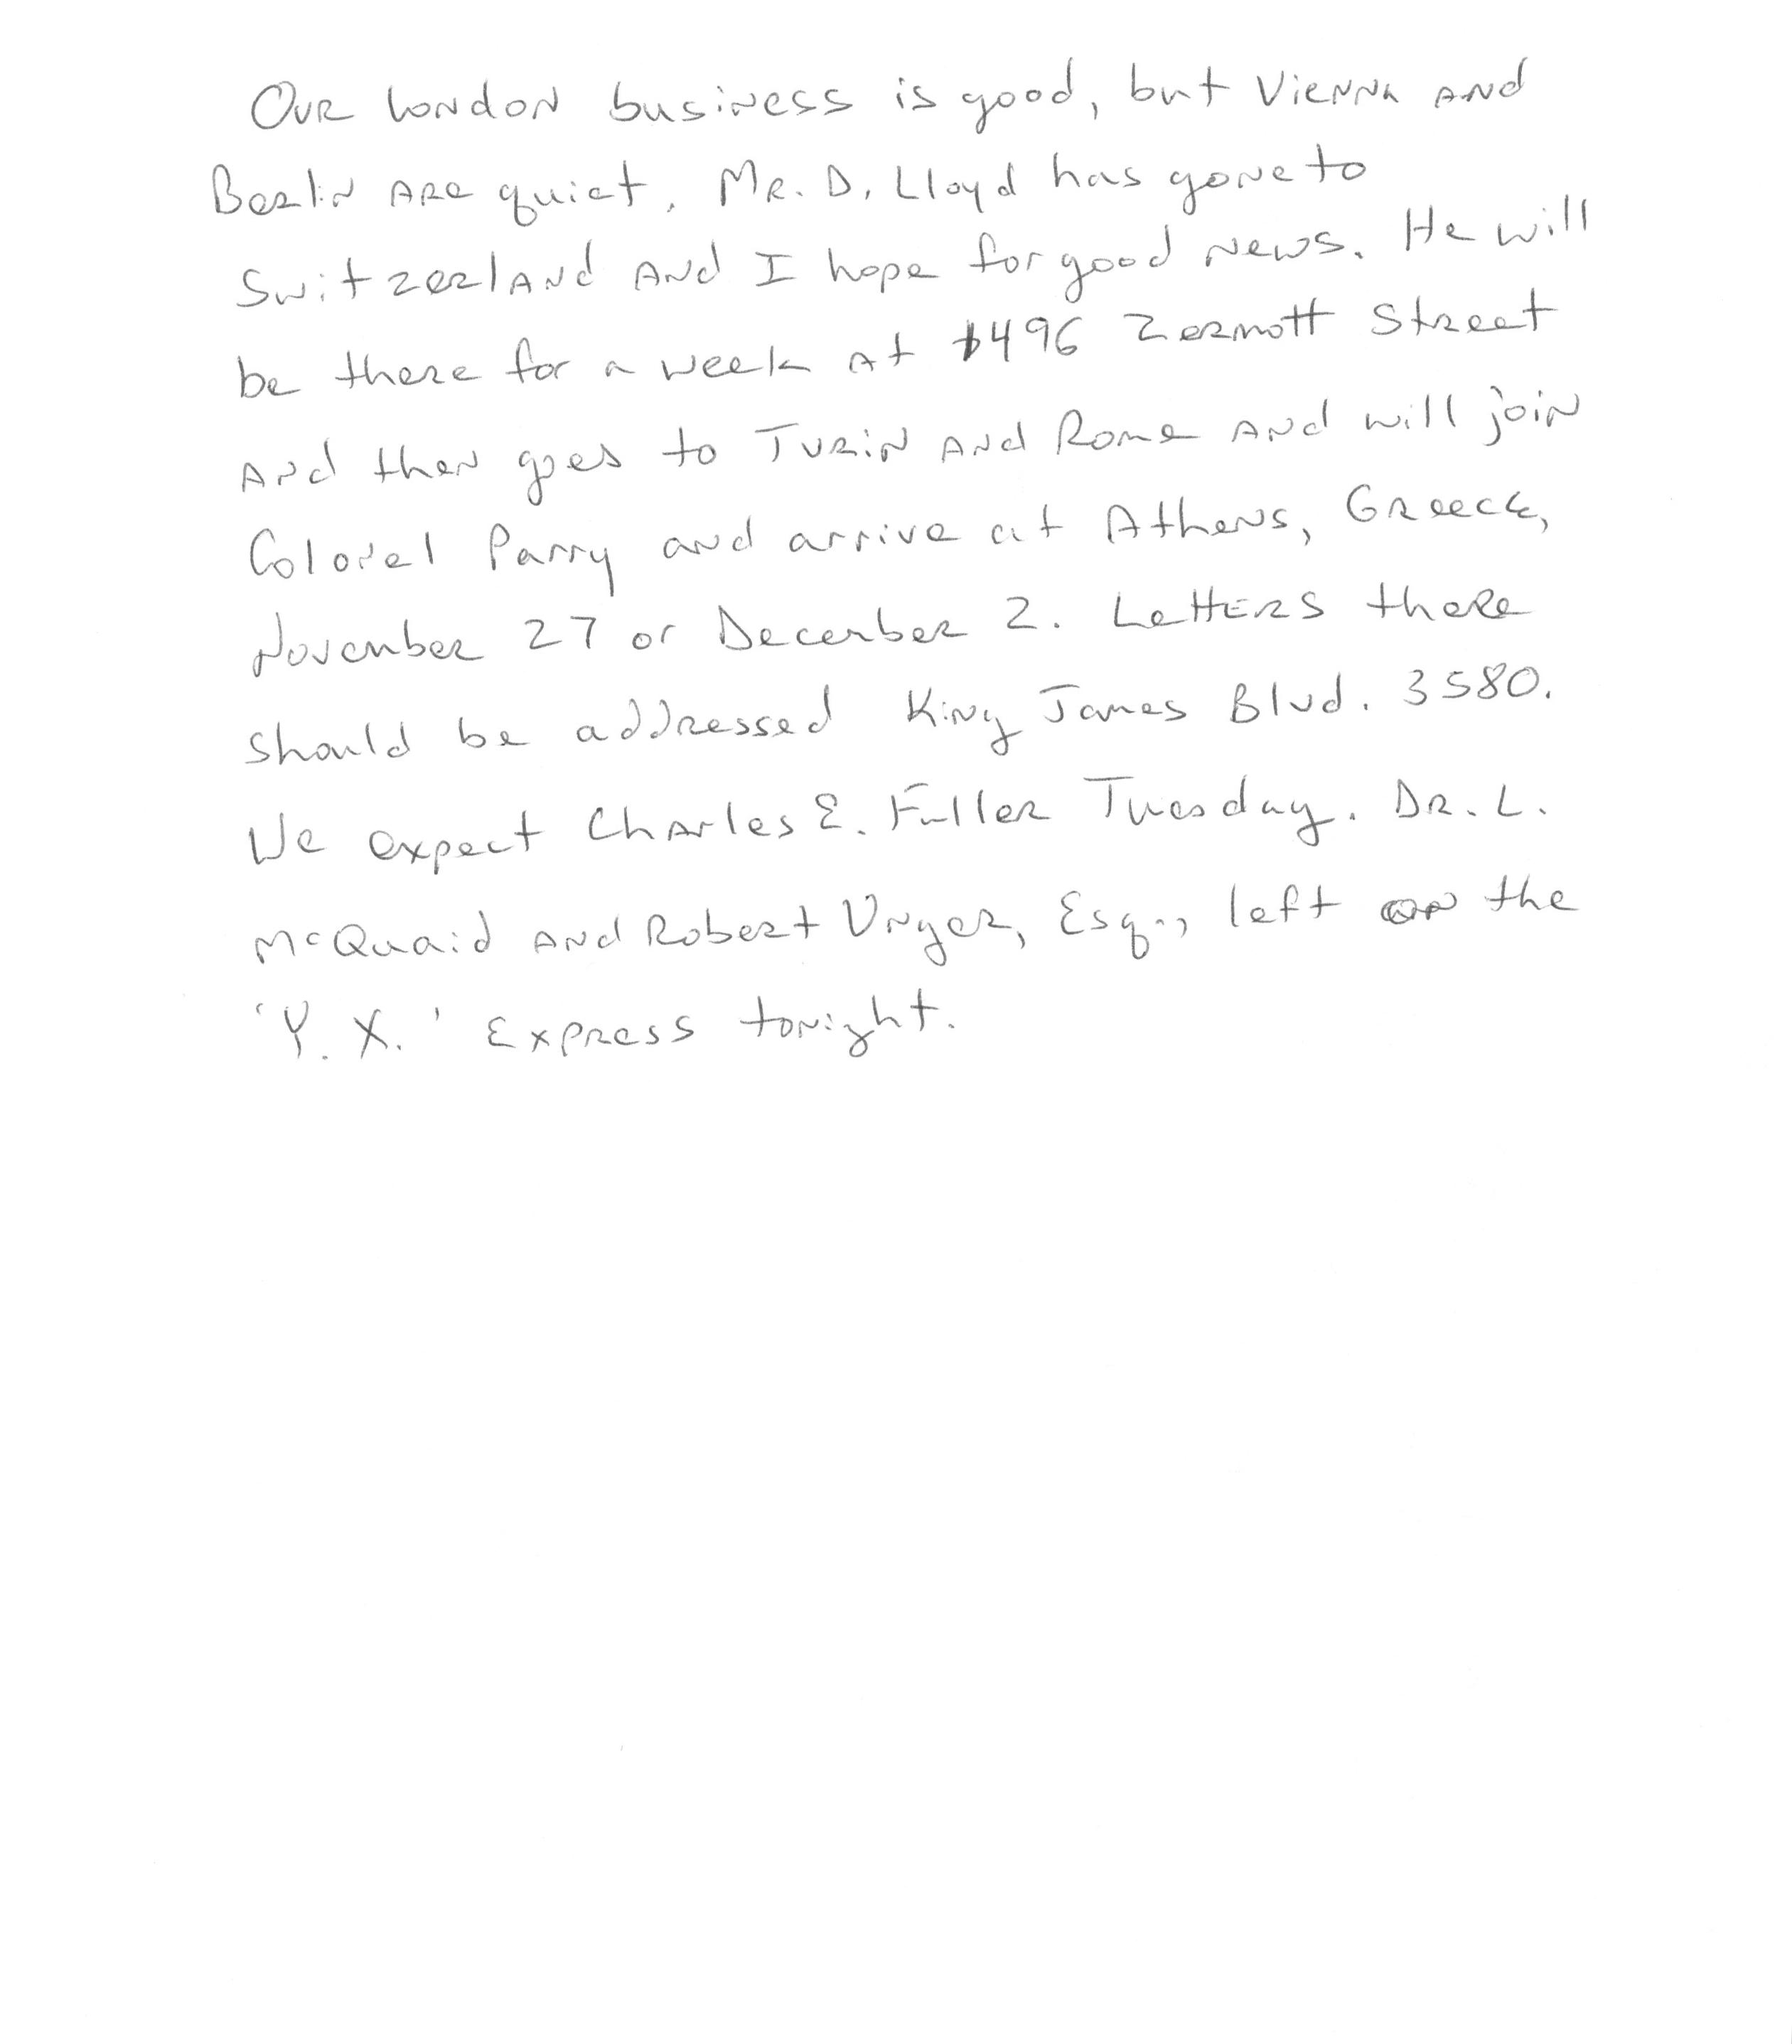 Our London business is good, but Vienna and
Berlin are quiet. Mr. D. Lloyd has gone to
Switzerland and I hope for good news. He will
be there for a week at 496 Zermott Street
and then goes to Turin and Rome and will join
Colonel Parry and arrive at Athens, Greece,
November 27 or December 2. Letters there
should be addressed King James Blvd. 3580.
We expect Charles E. Fuller Tuesday. Dr. L.
McQuaid and Robert Unger, Esq., left on the
'Y. X.' Express tonight.